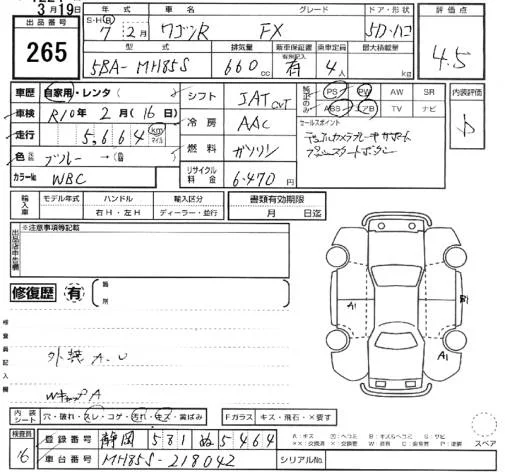 3月19日
出品番号
265
S・H・R 年式 車名 グレード ドア・形状
7年 2月 ワゴンR FX 5D・ハコ
型式 排気量 新車保証書 乗車定員 最大積載量
有効記入
5BA- MH85S 660cc 有 4人 kg
評価点
4.5
車歴 自家用・レンタ( )
車検 R10年 2月(16日)
走行 5,664 km マイル
色 ブルー→
カラーNo WBC
シフト IAT CVT
冷房 AAC
燃料 ガソリン
リサイクル料金 6,470円
純正のみ PS PW AW SR
ABS エアB TV ナビ
セールスポイント
デュアルカメラブレーキサポート
プッシュスタートボタン
内装評価
輸入車 モデル年式 ハンドル 輸入区分
年 右H・左H ディーラー・並行
書類有効期限
月 日迄
※注意事項等記載
出品店申告欄
修復歴 有
箇所
検査員記入欄
外装 A.U
WキャップA
A1
B1
A1
スペア
内装シート 穴・破れ・スレ・コゲ・汚れ・キズ・黄ばみ
Fガラス キズ・飛石・×要す
検査員
16
登録番号 静岡 581 ぬ 5464
車台番号 MH85S-218042
シリアルNo.